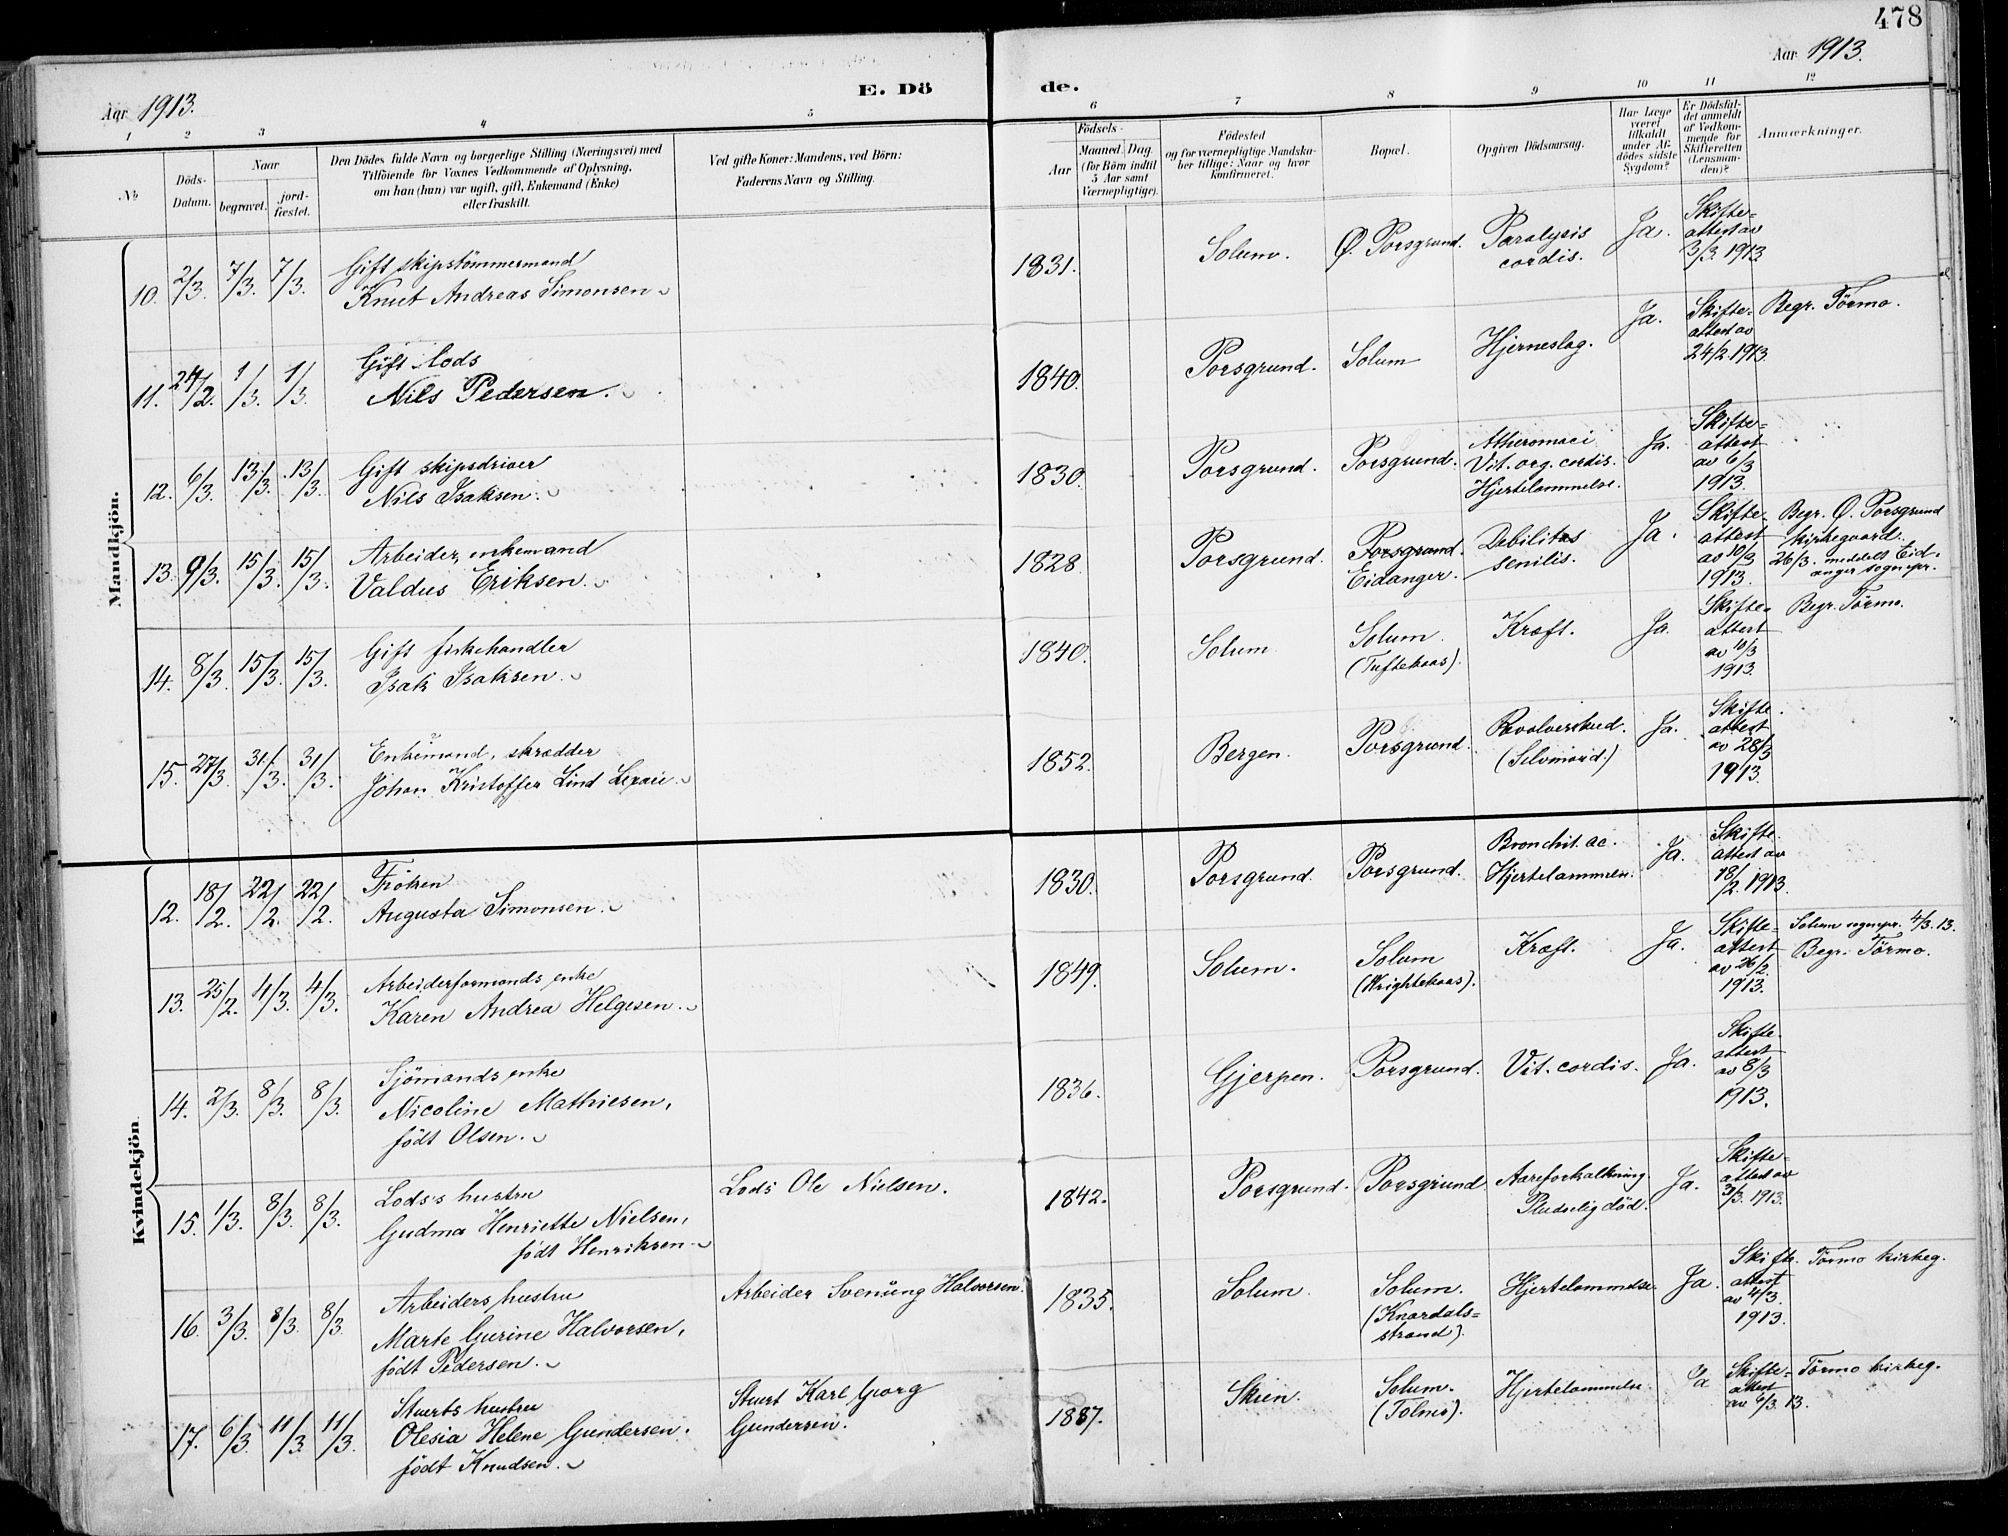 478
Aar 1913.
E. Döde.
Aar 1913.
1 2 3 4 5 6 7 8 9 10 11 12
No
Döds-Datum.
Naar
begravet.
jord-fæstet.
Den Dödes fulde Navn og borgerlige Stilling (Næringsvei) med
Tilföiende for Voxnes Vedkommende af Oplysning,
om han (hun) var ugift, gift, Enkemand (Enke)
eller fraskilt.
Ved gifte Koner: Mandens, ved Börn:
Faderens Navn og Stilling.
Födsels-
Aar
Maaned. Dag.
(for Börn indtil
5 Aar samt
Værnepligtige).
Födested
og for værnepligtige Mandska-
ber tillige: Naar og hvor
konfirmeret.
Bopæl.
Opgiven Dödsaarsag.
Har Læge
været
tilkaldt
under Af-
dödes sidste
Sygdom?
Er Dödsfal-
det anmeldt
af Vedkom-
mende for
Skifteretten
(Lensman-
den)?
Anmærkninger.
Mandkjön.
10. 2/3. 7/3. 7/3. Gift skipstömmermand
Knut Andreas Simonsen
1831. Solum. Ø. Porsgrund. Paralysis
cordis. Ja. Skifte-
attest av
3/3 1913
11. 24/2. 1/3. 1/3. Gift lods
Nils Pedersen.
1840. Porsgrund. Solum Hjerneslag. Ja. Skifte-
attest av
24/2 1913 Begr. Törmo.
12. 6/3. 13/3. 13/3. Gift skipsdriver
Nils Isaksen.
1830. Porsgrund. Porsgrund. Atheromaci
Vit. org. cordis.
Hjertelammelse. Ja. Skifte-
attest
av 6/3
1913.
13. 9/3. 15/3. 15/3. Arbeider, enkemand
Valdus Eriksen.
1828. Porsgrund. Porsgrund.
Eidanger. Debilitas
senilis. Ja. Skifte-
attest
av 10/3
1913. Begr. Ø. Porsgrund
kirkegaard.
26/3. meddelt Eid-
anger sognepr.
14. 8/3. 15/3. 15/3. Gift fiskehandler
Isak Isaksen.
1840. Solum Solum.
(Tuftekaas). Kræft. Ja. Skifte-
attest
av 10/3
1913. Begr. Törmo.
15. 27/3. 31/3. 31/3. Enkemand, skrædder
Johan Kristoffer Lind
1852. Bergen. Porsgrund. Revolverskud.
(Selvmord.) Ja. Skifte-
attest
av 28/3
1913.
Kvindekjön.
12. 18/2. 22/2. 22/2. Fröken
Augusta Simonsen.
1830. Porsgrund. Porsgrund. Bronchit. ac.
Hjertelammen. Ja. Skifte-
attest av
18/2 1913.
13. 25/2. 4/3. 4/3. Arbeiderformands enke
Karen Andrea Helgesen.
1849. Solum. Solum
(Wrightekaas). Kræft. Ja. Skifte-
attest
av 26/2
1913. Solum sognepr. 4/3. 13.
Begr. Törmo.
14. 2/3. 8/3. 8/3. Sjömands enke
Nicoline Mathiesen,
födt Olsen.
1836. Gjerpen. Porsgrund. Vit. cordis. Ja. Skifte-
attest
av 8/3
1913.
15. 1/3. 8/3. 8/3. Lods's hustru
Gudma Henriette Nielsen,
födt Henriksen
Lods Ole Nielsen.
1842. Porsgrund. Porsgrund Aareforkalkning
Pludselig död. Ja. Skifte-
attest av
3/3. 1913.
16. 3/3. 8/3. 8/3. Arbeiders hustru
Marte Gurine Halvorsen,
födt Pedersen.
Arbeider Svenung Halvorsen.
1835. Solum. Solum.
(Knardals-
strand). Hjertelammelse. Ja. Skifte-
attest
av 4/3.
1913. Törmo kirkeg.
17. 6/3. 11/3. 11/3. Stuerts hustru
Olesia Helene Gundersen.
födt Knudsen.
Stuert Karl Georg
Gundersen.
1887. Skien. Solum.
(Tolmo). Hjertelammelse. Ja Skifte-
attest
av 6/3. 13. Törmo kirkeg.